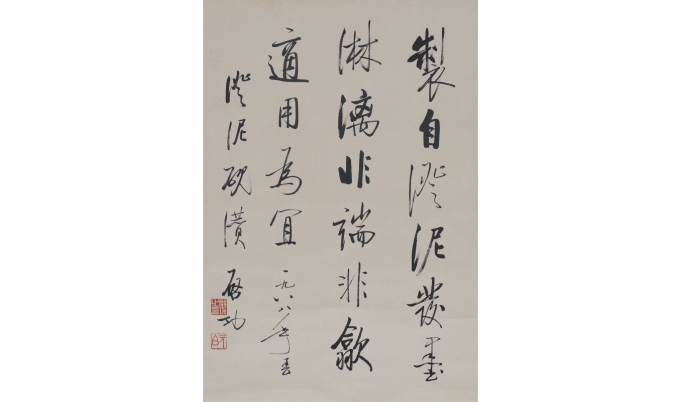 製自澄泥發墨
淋漓非端非歙
適用為宜 一九八八年春
澄泥硯讚 啟功